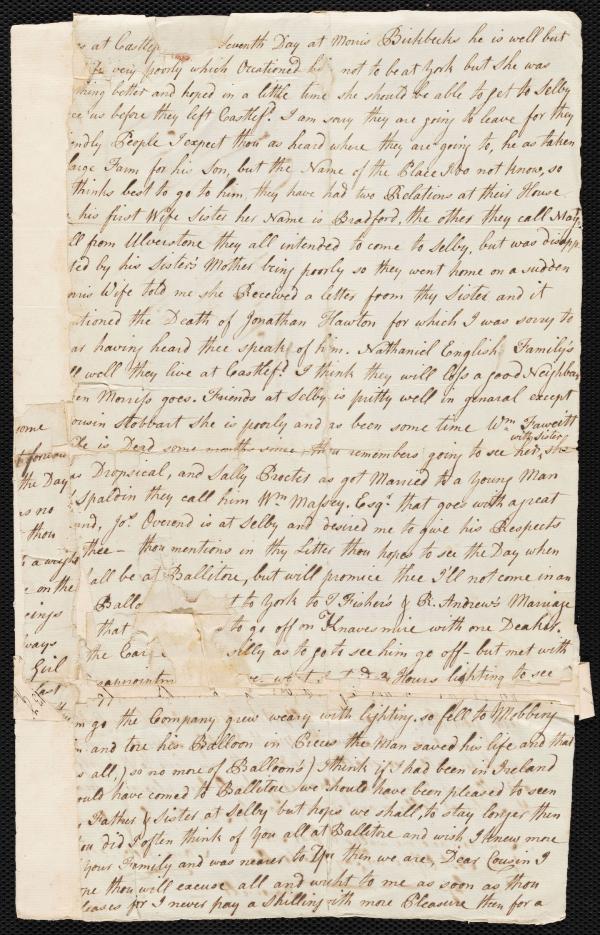 at Castlef seventh Day at Morris Birkbecks he is well but
very poorly which Ocationed not to be at York but she was
thing better and hoped in a little time she should be able to get to Selby
us before they left Castlefd. I am sorry they are going to leave for they
endly People I expect thou as heard where they are going to, he as taken
large Farm for his Son, but the Name of the Place I do not know, so
thinks best to go to him, they have had two Relations at their House
his first Wife Sister her Name is Bradford, the other they call Maty
ll from Ulverstone they all intended to come to Selby, but was disapp
ted by his Sister's Mother being poorly so they went home on a sudden
orris Wife told me she Received a letter from thy Sister and it
ntioned the Death of Jonathan Hawton for which I was sorry to
ar having heard thee speak of him. Nathaniel English Family's
ll well they live at Castlefd. I think they will loss a good Neighbour
en Morriss goes. Friends at Selby is pritty well in genaral except
ousin Stobbart she is poorly and as been some time Wm Fawcitt
is Dead some months since, thou remembers going to see her, with Sister she
as Dropsical, and Sally Procter as got Married to a young Man
Spaldin they call him Wm Massey. Esqr. that goes with a great
and, Jos. Overend is at Selby and desired me to give his Respects
thee - thou mentions in thy Letter thou hopes to see the Day when
all be at Ballitore, but will promice thee I'll not come in an
Ballo t to York to T Fisher's & R. Andrew's Marriage
that s to go off on Knavesmire with one Deaker.
the Earge silly as to go to see him go off - but met with
sappointm Hours lighting to see
go the Company grew weary with lighting. so fell to Mobbing
and tore his Balloon in Pieces the Man saved his life and that
s all,) so no more of Balloon's) I think if I had been in Ireland
ould have comed to Ballitore we should have been pleased to seen
Father & Sister at Selby but hope we shall, to stay longer then
ou did I often think of You all at Ballitore and wish I knew more
your Family and was nearer to You then we are, Dear Cousin I
pe thou will excuse all and wright to me as soon as thou
leases for I never pay a shilling with more Pleasure then for a
ome
the Day
as no
thou
a weight
on the
eings
ways
Girl
last